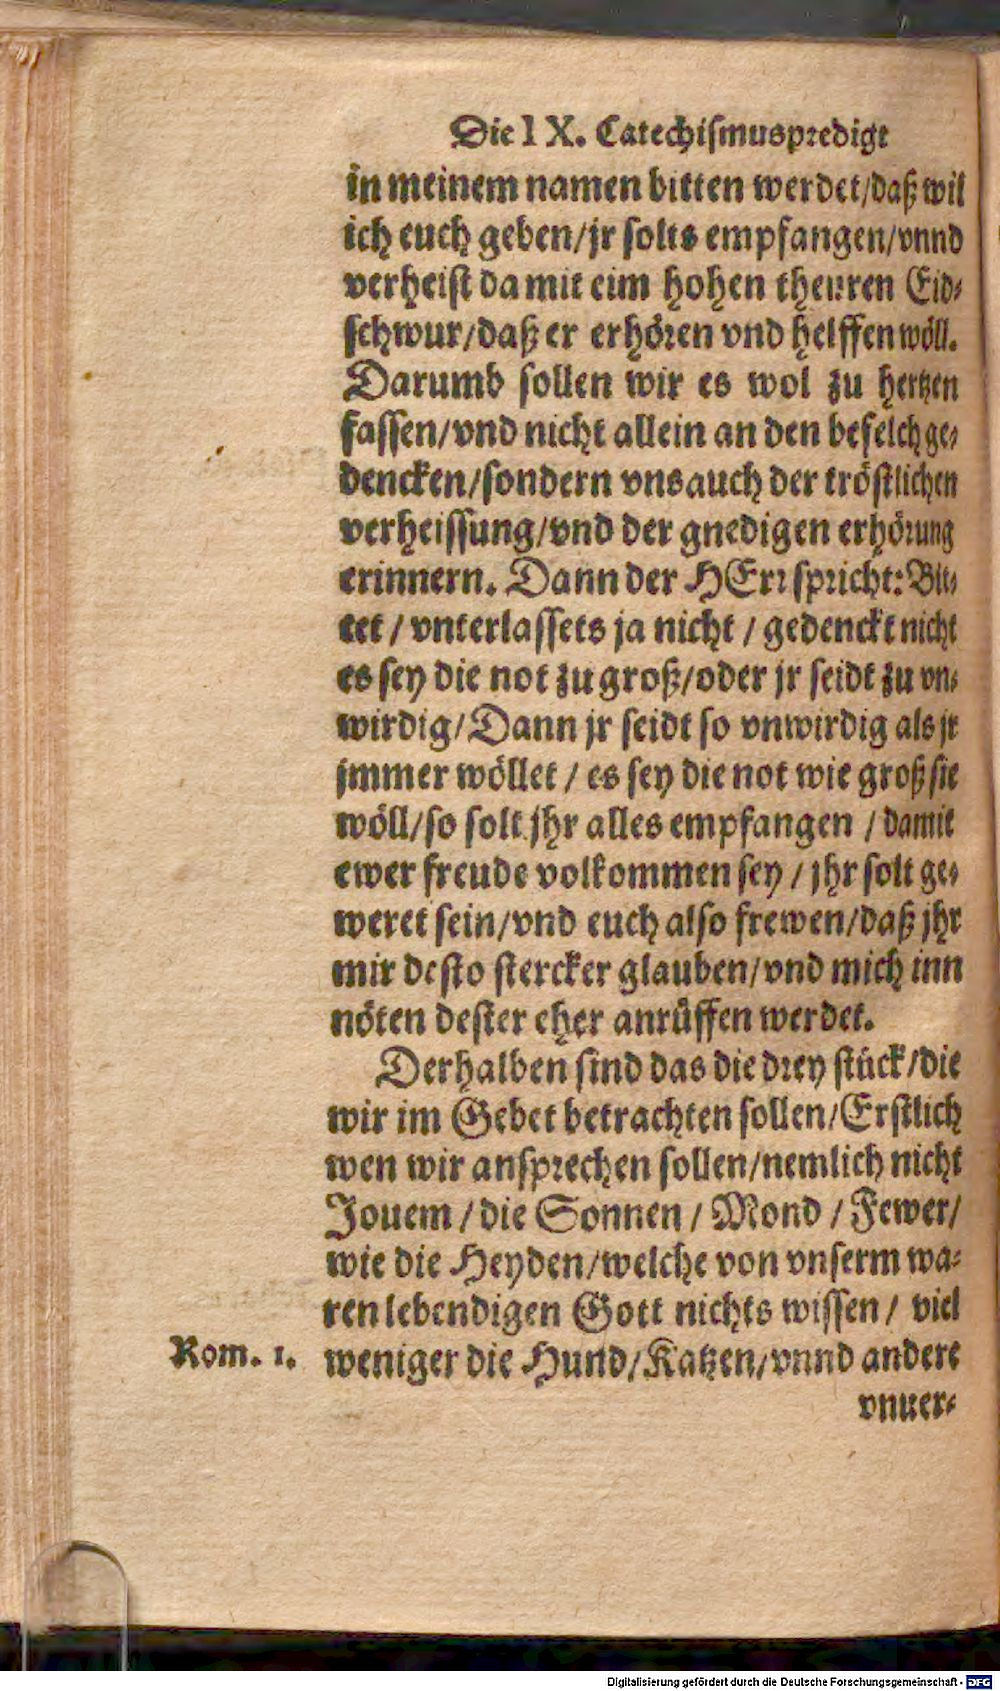 Die IX. Catechiſmuspredigt
in meinem namen bitten werdet/daß wil
ich euch geben/jr ſolts empfangen/vnnd
verheiſt damit eim hohen theuren Eid-
ſchwur/daß er erhören vnd helffen wöll.
Darumb ſollen wir es wol zu hertzen
faſſen/vnd nicht allein an den befelch ge-
dencken/ſondern vns auch der tröſtlichen
verheiſſung/vnd der gnedigen erhörung
erinnern. Dann der HErr ſpricht: Bit-
tet / vnterlaſſets ja nicht / gedenckt nicht
es ſey die not zu groß/oder jr ſeidt zu vn-
wirdig/Dann jr ſeidt ſo vnwirdig als jr
jmmer wöllet / es ſey die not wie groß ſie
wöll/ſo ſolt jhr alles empfangen / damit
ewer freude volkommen ſey / jhr ſolt ge-
weret ſein/vnd euch alſo frewen/daß jhr
mir deſto ſtercker glauben/vnd mich inn
nöten deſter eher anrůffen werdet.
Derhalben ſind das die drey ſtück/die
wir im Gebet betrachten ſollen/Erſtlich
wen wir anſprechen ſollen/nemlich nicht
Jouem / die Sonnen / Mond / Fewer/
wie die Heyden/welche von vnſerm wa-
ren lebendigen Gott nichts wiſſen / viel
Rom. 1. weniger die Hund/Katzen/vnnd andere
vnuer-
Digitalisierung gefördert durch die Deutsche Forschungsgemeinschaft - DFG